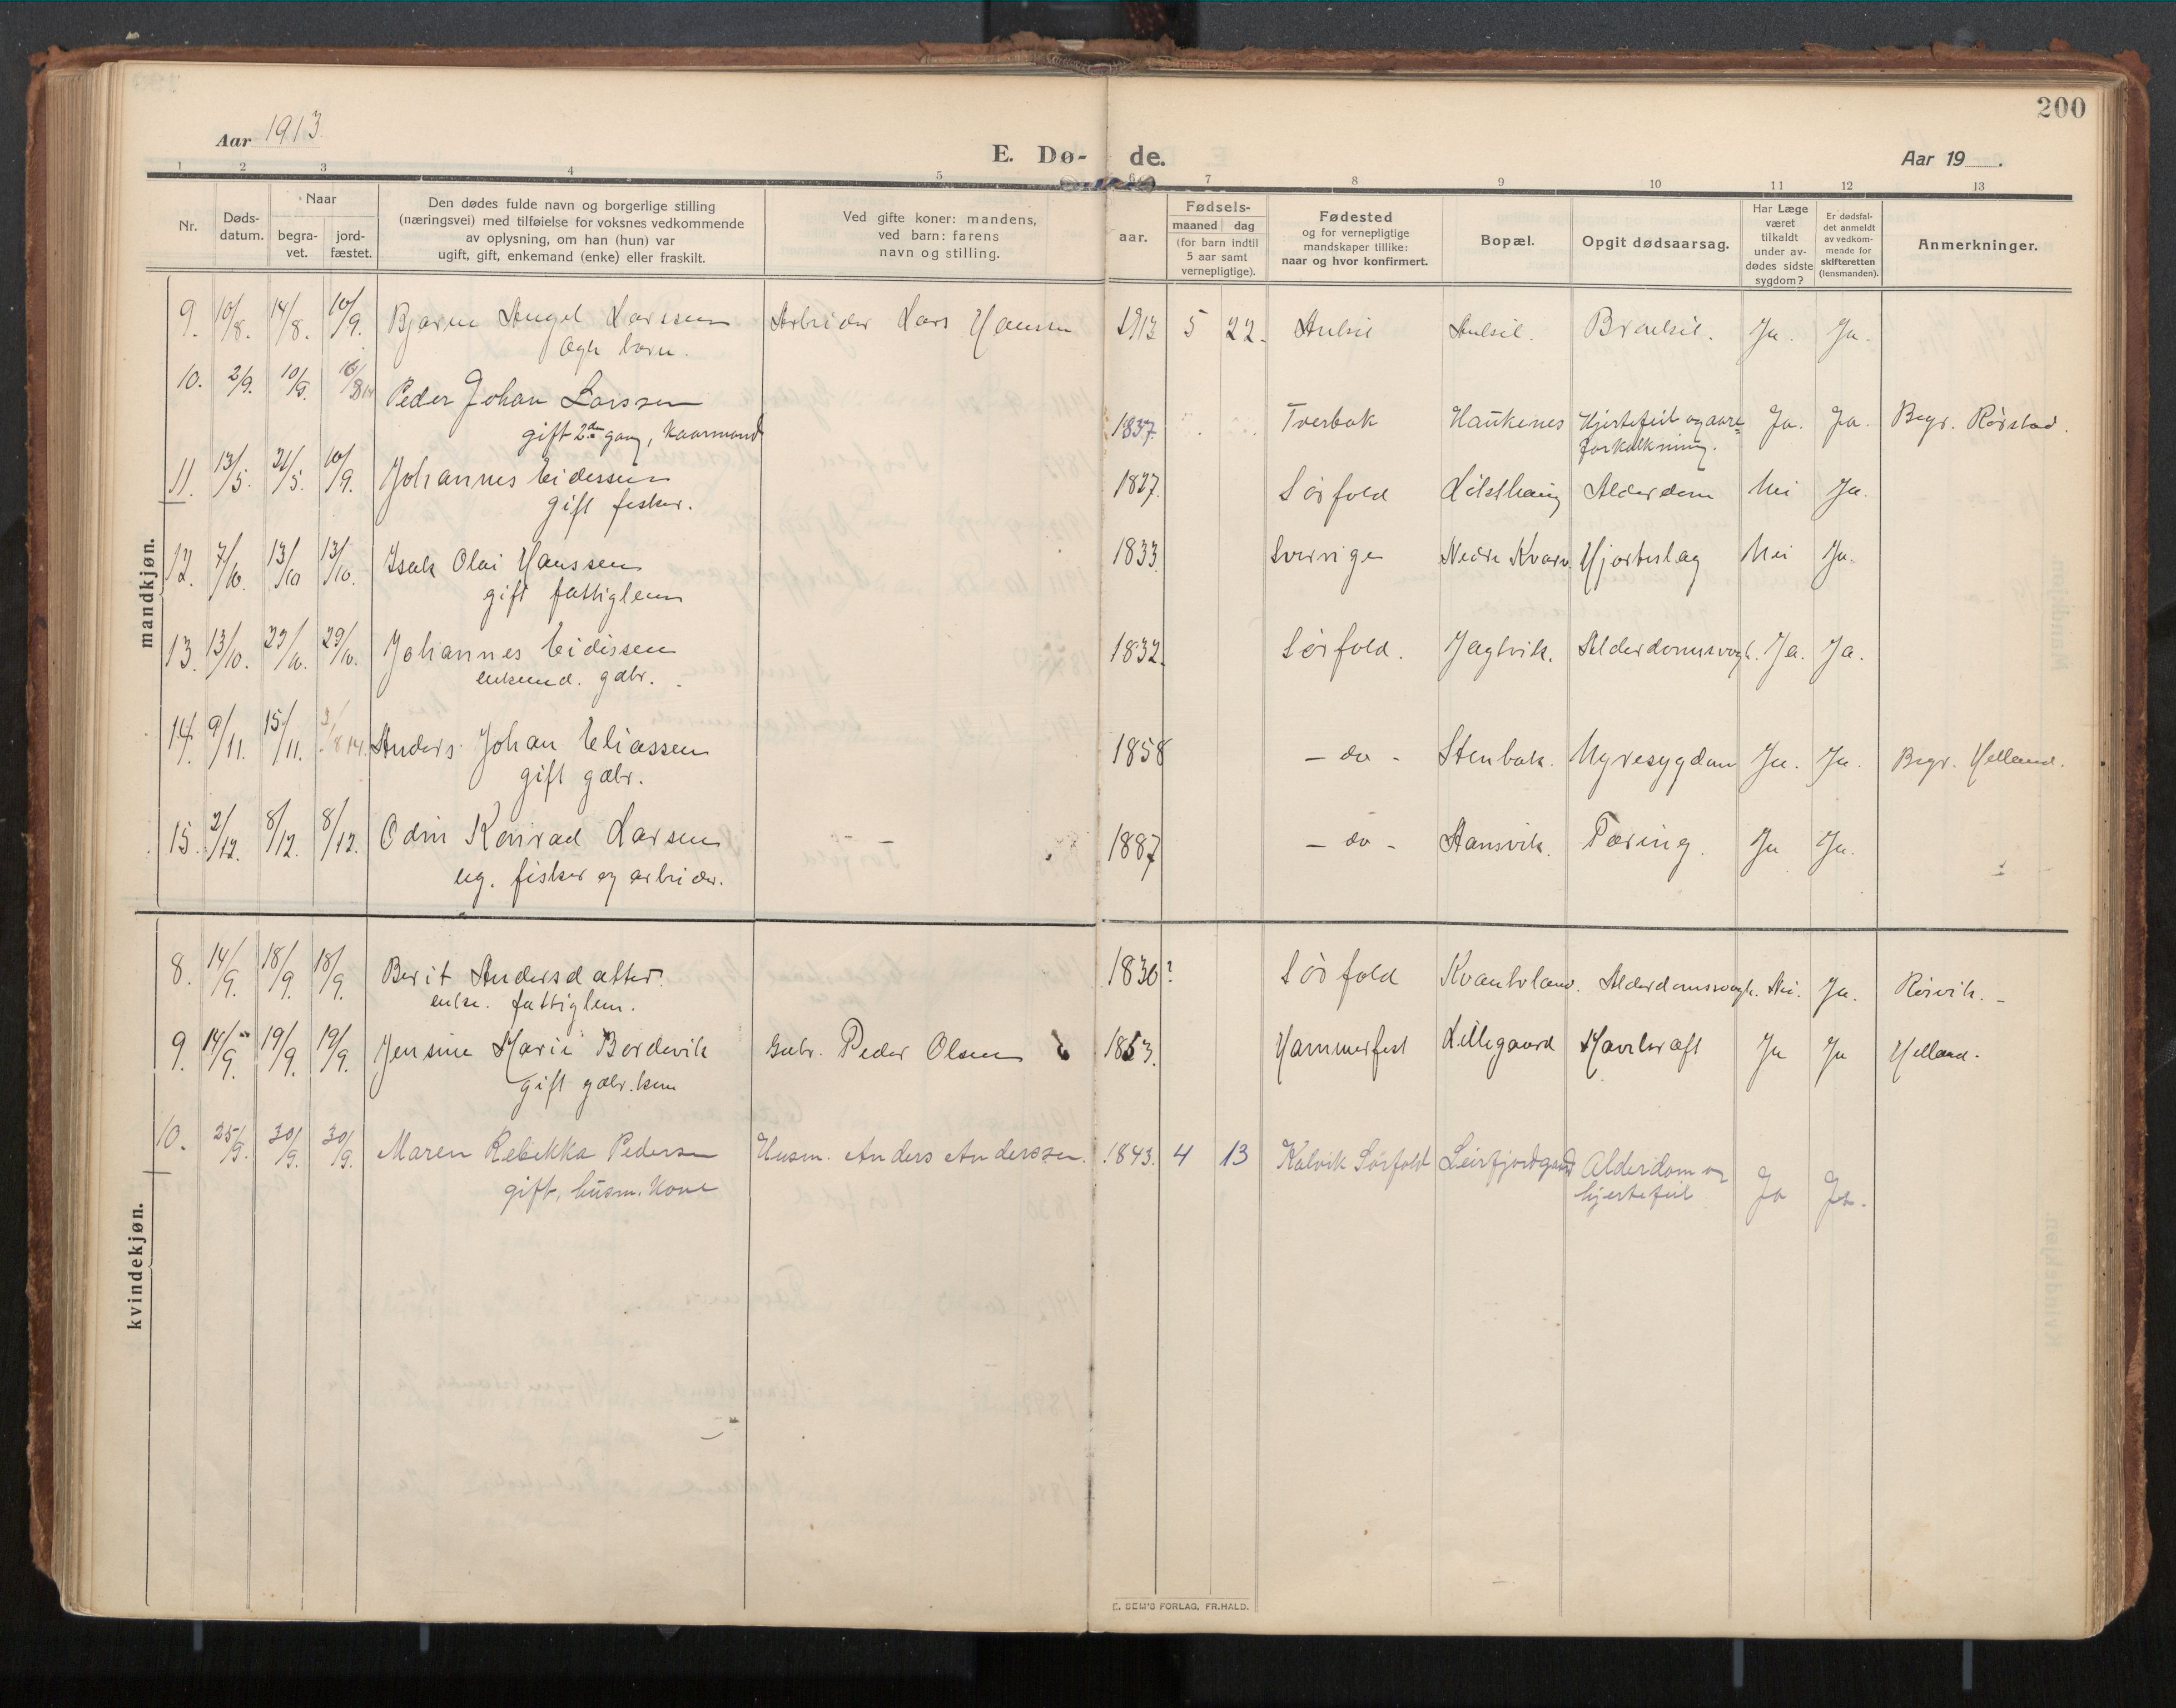 200
Aar 1913
E. Dø- de.
Aar 19 .
1 2 3 4 5 6 7 8 9 10 11 12 13
Nr.
Døds-
datum.
Naar
begra-
vet.
jord-
fæstet.
Den dødes fulde navn og borgerlige stilling
(næringsvei) med tilføielse for voksnes vedkommende
av oplysning, om han (hun) var
ugift, gift, enkemand (enke) eller fraskilt.
Ved gifte koner: mandens,
ved barn: farens
navn og stilling.
Fødsels-
aar. maaned dag
(for barn indtil
5 aar samt
vernepligtige).
Fødested
og for vernepligtige
mandskaper tillike:
naar og hvor konfirmert.
Bopæl.
Opgit dødsaarsag.
Har Læge
været
tilkaldt
under av-
dødes sidste
sygdom?
Er dødsfal-
det anmeldt
av vedkom-
mende for
skifteretten
(lensmanden).
Anmerkninger.
mandkjøn.
9. 10/8. 14/8. 10/9. Bjarne Angel Larssen Arbeider Lars Hanssen 1913 5 22. Ja. Ja.
ægte barn.
10. 2/9. 10/9. Peder Johan Larssen
gift 2den gang, kaarmand 1837. Tverbak Haukenes Hjertefeil og aare= Ja. Ja. Begr. Rørstad.
forkalkning.
11. 13/5. 31/5. 10/9. Johannes Eidessen 1827. Sørfold Alderdom Nei Ja.
gift fisker.
12. 7/10. 13/10 13/10. Isak Olai Hanssen 1833. Sverige Nedre Kvarv. Hjerteslag Nei Ja.
gift fattiglem
13. 13/10. 23/10. 29/10. Johannes Eidissen 1832. Sørfold. Jagtvik. Alderdomssvagh. Ja. Ja.
enkemd. gbr.
14. 9/11. 15/11. 3/8 14. Anders Johan Eliassen 1858 - do - Stenbak. Nyresygdom Ja. Ja. Begr. Helland.
gift gbr.
15. 2/12. 8/12. 8/12. Odin Konrad Larsen - - 1887 - do - Hansvik. Tæring. Ja Ja.
ug. fisker og arbeider.
kvindekjøn.
8. 14/9. 18/9. 18/9. Berit Andersdatter 1830? Sørfold Kvantoland. Alderdomssvagh. Nei. Ja. Rørvik. -
enke. fattiglem.
9. 14/9. 19/9. 19/9. Jensine Marie Bordevik Gbr. Peder Olsen 1853. Hammerfest Lillegaard Mavekræft Ja Ja Helland.
gift gbr. kone
10. 25/9. 30/9. 30/9. Maren Rebekka Pedersen Husm. Anders Anderssen. 1843. 4 13 Kalvik Sørfold Leirfjordgaard Alderdom og
gift, husm. kone hjertefeil Ja Ja.
E. SEM'S FORLAG, FR.HALD.